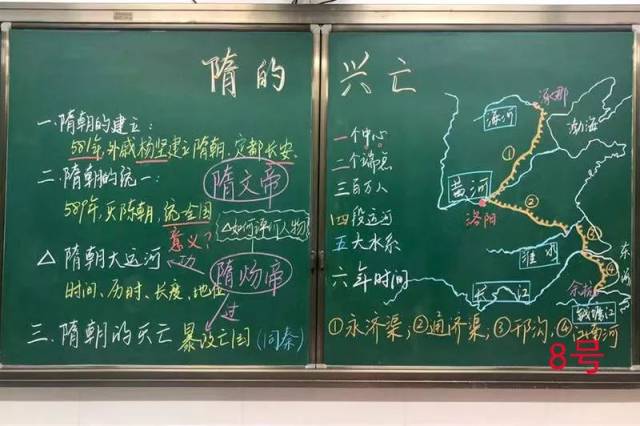 隋的兴亡
一.隋朝的建立:
581年,外戚杨坚建立隋朝,定都长安.
二.隋朝的统一:
589年,灭陈朝,统全国
意义?
隋文帝
△如何评价人物
△隋朝大运河
功
隋炀帝
时间、历时、长度、地位
过
三.隋朝的灭亡
暴政亡国
(同秦)
一个中心
二个端点
三百万人
四段运河
五大水系
六年时间
涿郡
海河
渤海
①
黄河
洛阳
②
淮水
③
东海
长江
④
余杭
钱塘江
①永济渠,②通济渠,③邗沟,④江南河
8号